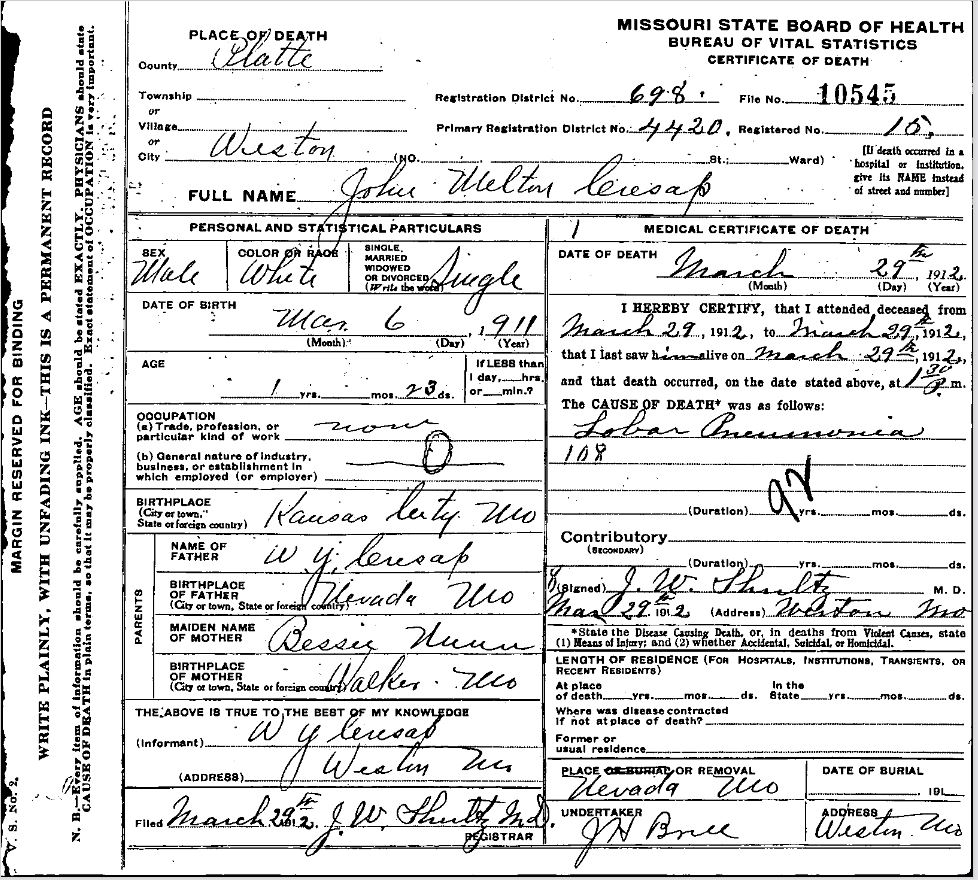 MISSOURI STATE BOARD OF HEALTH
BUREAU OF VITAL STATISTICS
CERTIFICATE OF DEATH
PLACE OF DEATH
County Platte
Township
or
Village
or
City Weston (NO. St.; Ward)
Registration District No. 698. File No. 10545
Primary Registration District No. 4420. Registered No. 15.
[If death occurred in a
hospital or institution,
give its NAME instead
of street and number]
FULL NAME John Melton Cresap
PERSONAL AND STATISTICAL PARTICULARS
SEX Male
COLOR OR RACE White
SINGLE,
MARRIED
WIDOWED
OR DIVORCED
(Write the word) Single
DATE OF BIRTH
Mar. 6, 1911
(Month) (Day) (Year)
AGE
1 yrs. mos. 23 ds.
If LESS than
1 day, hrs.
or min.?
OCCUPATION
(a) Trade, profession, or
particular kind of work none
(b) General nature of industry,
business, or establishment in
which employed (or employer) 0
BIRTHPLACE
(City or town,
State or foreign country) Kansas City Mo
PARENTS
NAME OF
FATHER W Y Cresap
BIRTHPLACE
OF FATHER
(City or town, State or foreign country) Nevada Mo
MAIDEN NAME
OF MOTHER Bessie Nunn
BIRTHPLACE
OF MOTHER
(City or town, State or foreign country) Walker Mo
THE ABOVE IS TRUE TO THE BEST OF MY KNOWLEDGE
(Informant) W Y Cresap
(ADDRESS) Weston Mo
Filed March 29th 1912. J. W. Shultz M.D.
REGISTRAR
1 MEDICAL CERTIFICATE OF DEATH
DATE OF DEATH
March 29th, 1912
(Month) (Day) (Year)
I HEREBY CERTIFY, that I attended deceased from
March 29, 1912, to March 29th, 1912,
that I last saw him alive on March 29th, 1912,
and that death occurred, on the date stated above, at 1 30 P. m.
The CAUSE OF DEATH* was as follows:
Lobar Pneumonia
108
92
(Duration) yrs. mos. ds.
Contributory
(SECONDARY)
(Duration) yrs. mos. ds.
(Signed) J. W. Shultz M. D.
Mar 29th 1912 (Address) Weston Mo
*State the Disease Causing Death, or, in deaths from Violent Causes, state
(1) Means of Injury; and (2) whether Accidental, Suicidal, or Homicidal.
LENGTH OF RESIDENCE (FOR HOSPITALS, INSTITUTIONS, TRANSIENTS, OR
RECENT RESIDENTS)
At place
of death yrs. mos. ds. In the
State yrs. mos. ds.
Where was disease contracted
if not at place of death?
Former or
usual residence
PLACE OF BURIAL OR REMOVAL
Nevada Mo
DATE OF BURIAL
191
UNDERTAKER
ADDRESS
Weston Mo
MARGIN RESERVED FOR BINDING
WRITE PLAINLY, WITH UNFADING INK—THIS IS A PERMANENT RECORD
N. B.—Every item of information should be carefully supplied. AGE should be stated EXACTLY. PHYSICIANS should state
CAUSE OF DEATH in plain terms, so that it may be properly classified. Exact statement of OCCUPATION is very important.
V. S. No. 2.